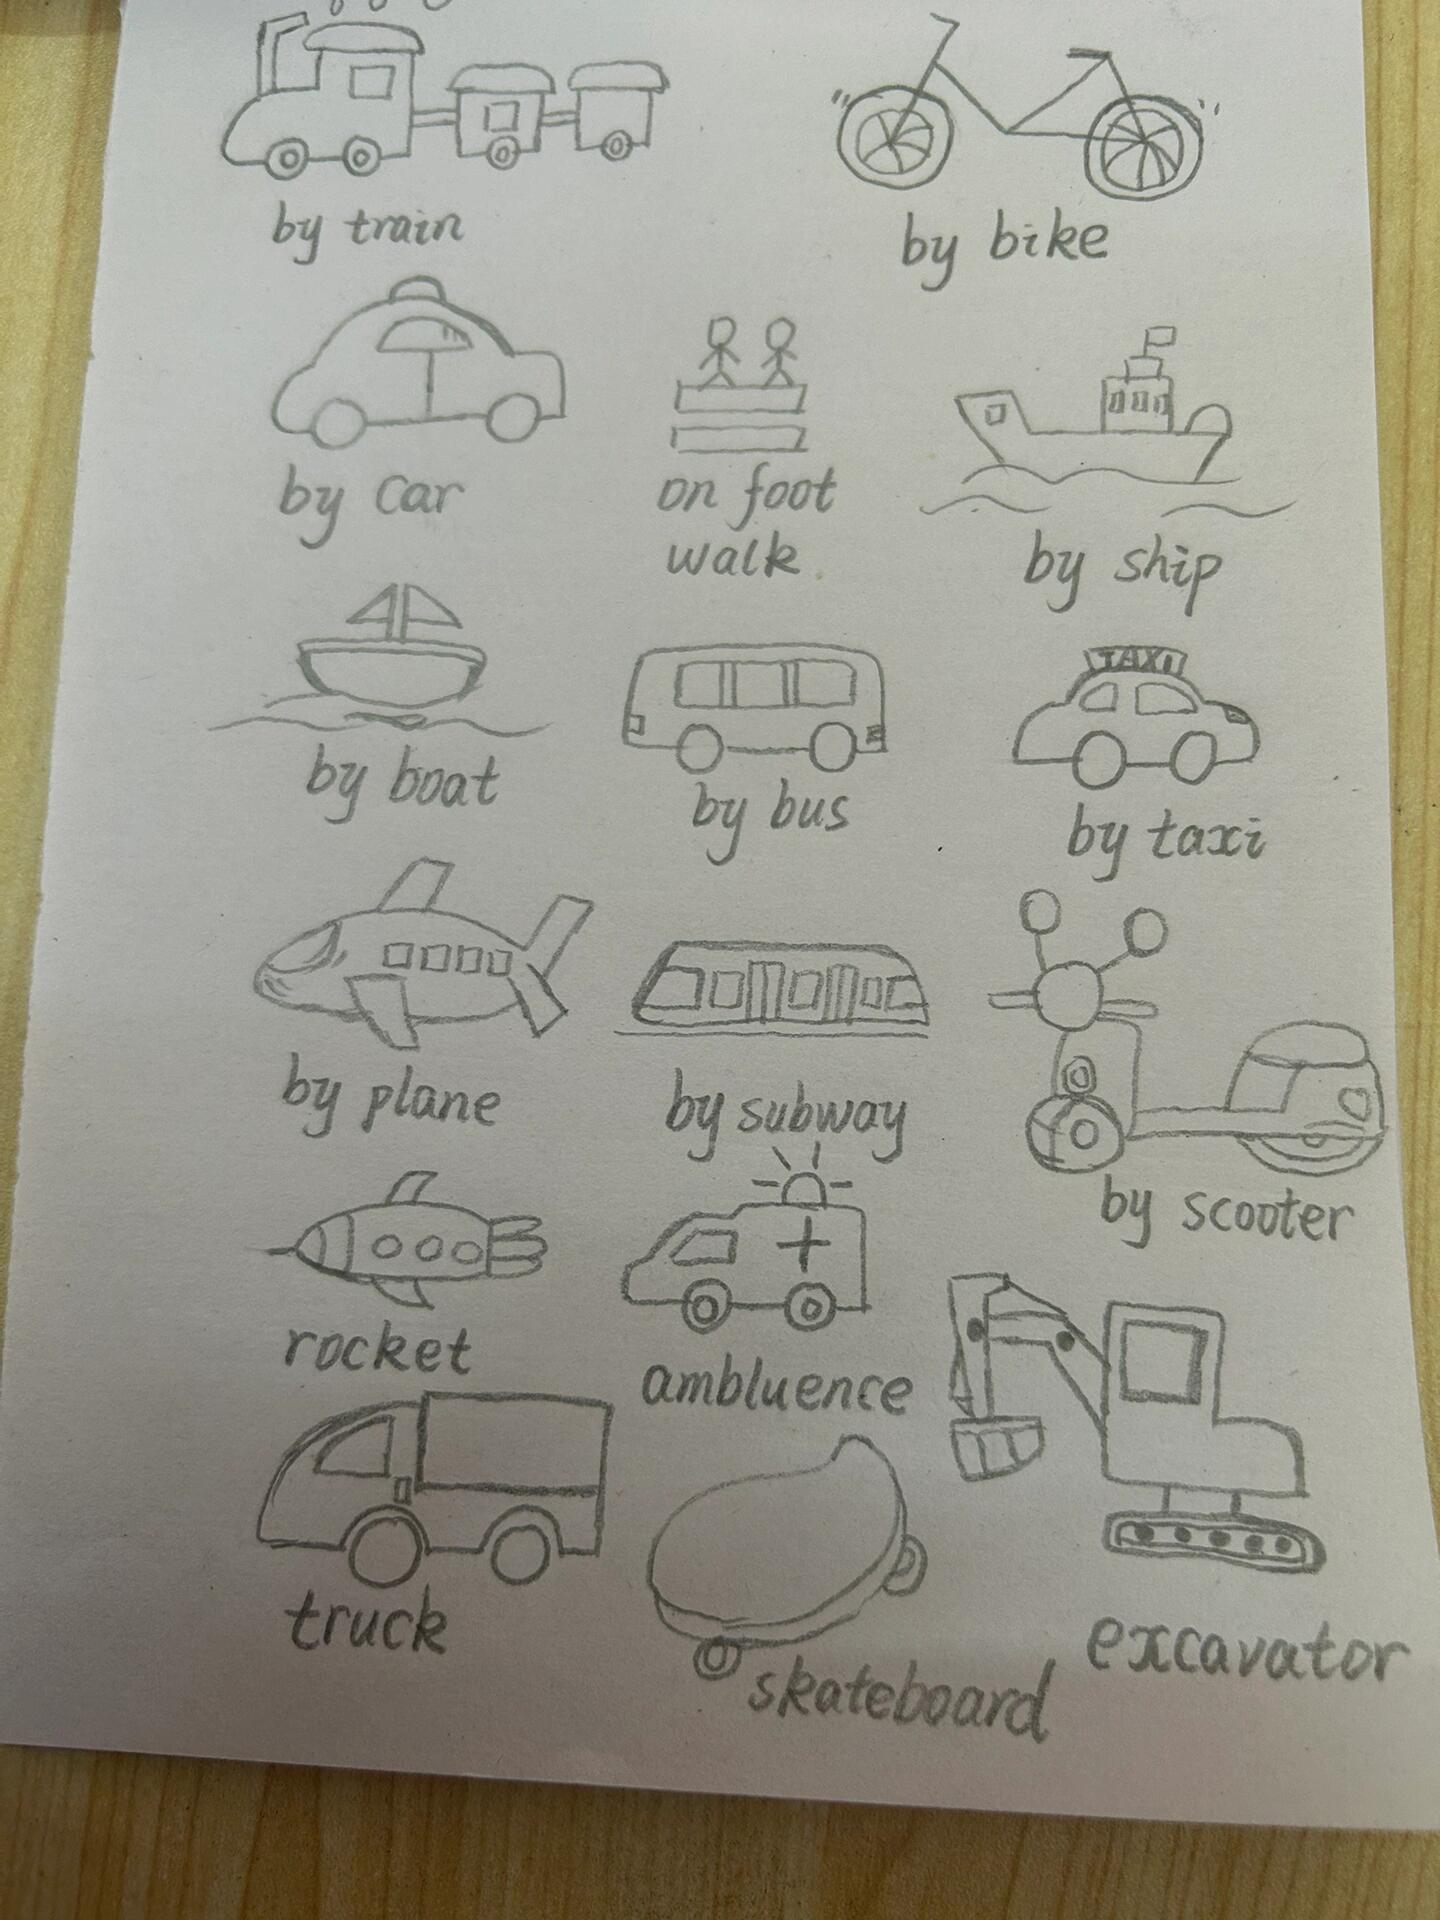 by train
by bike
by car
on foot
walk
by ship
by boat
by bus
TAXI
by taxi
by plane
by subway
by scooter
rocket
ambluence
truck
skateboard
excavator